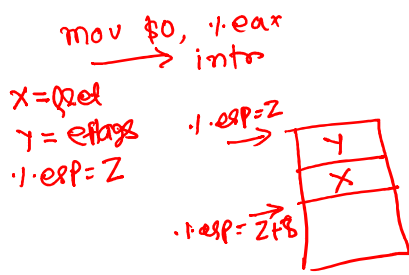 mov $0, %eax
intr
X=
Y= eflags
%esp=Z
%esp=Z
Y
X
%esp=Z+8